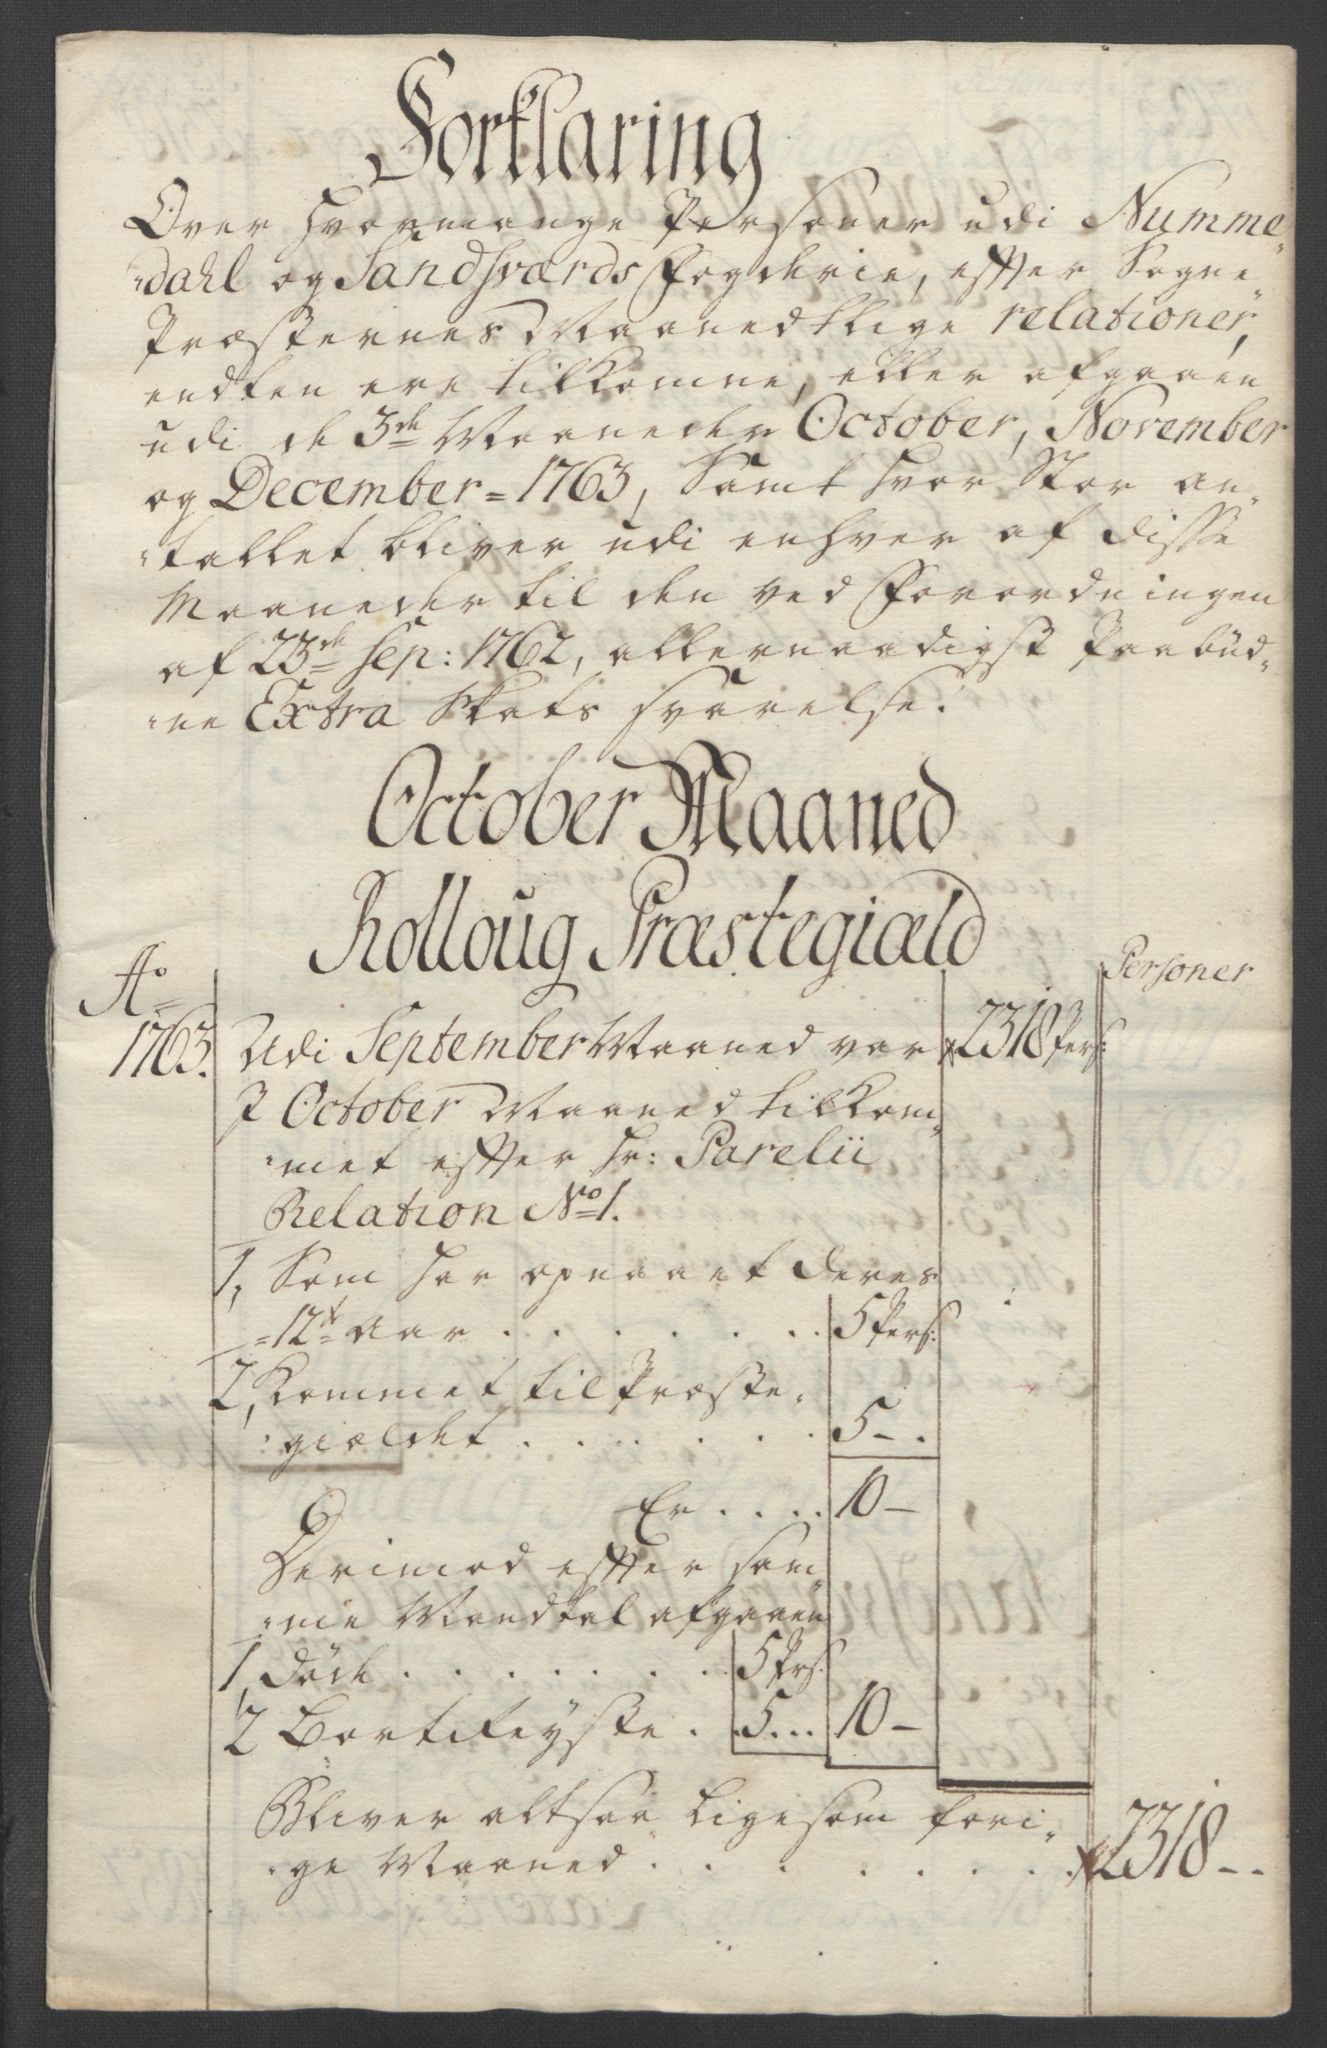 Forklaring
Over hvormange Personer udi Numme-
-dahl og Sandsværds Fogderie, efter Sogne-
Præsternes Maanedtlige relationer,
endten ere tilkomne, eller afgaaen
udi de 3de Maaneder October, November
og December = 1763, Samt hvor Stor an-
-tallet bliver udi enhver af disse
Maaneder til den ved Forordningen
af 23de Sep: 1762, allernaadigst Paabud-
-ne Extra Skats Svarelse.
October Maaned
Rolloug Præstegiæld
Ao
Personer
1763. Udi September Maaned var 2318 Pers:
I October Maaned tilkom-
-met efter Hr: Parelii
Relation No 1.
1, Som har opnaaet deres
=12te Aar . . . . . . . 5 Pers:
2, Kommet til Præste-
-giældet . . . . . . 5 - .
Er . . . . 10 -
Derimod efter sam-
-me Mandtal afgaaen
1 Døde . . . . . . . 5 Prs:
2 Bortreyste . . 5 . . . 10 -
Bliver altsaa ligesom fori-
-ge Maaned . . . . . . . 2318 - -